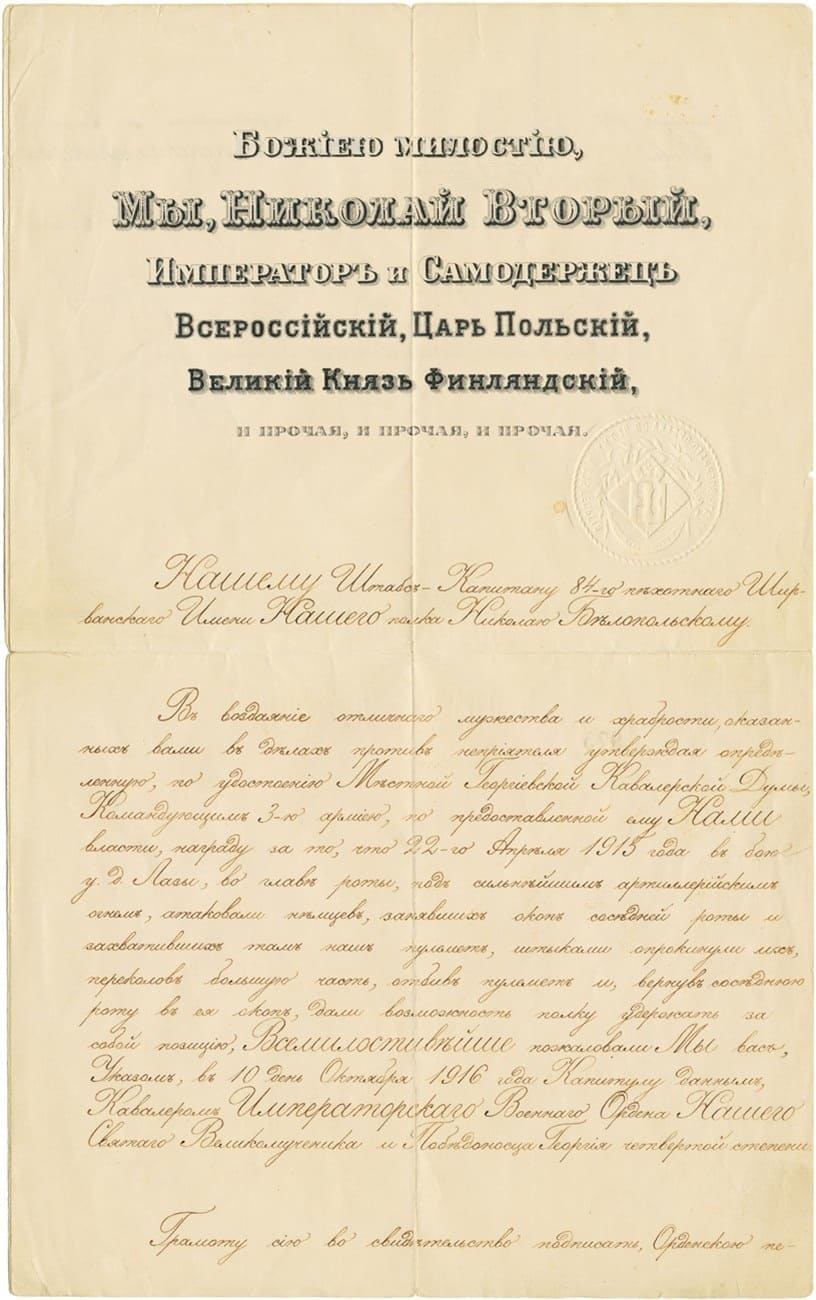 Божіею милостію,
Мы, Николай Вторый,
Императоръ и Самодержецъ
Всероссійскій, Царь Польскій,
Великій Князь Финляндскій,
и прочая, и прочая, и прочая.
Нашему Штабсъ-Капитану 84-го пѣхотнаго Шир-
ванскаго Имени Нашего полка Николаю Бѣлопольскому.
Въ воздаяніе отличнаго мужества и храбрости, оказан-
ныхъ вами въ дѣлахъ противъ непріятеля утверждая опредѣ-
ленную, по удостоенію Мѣстной Георгіевской Кавалерской Думы,
Командующимъ 3-ю арміею, по предоставленной ему Нами
власти, награду за то, что 22-го Апрѣля 1915 года въ бою
у д. Лазы, во главѣ роты, подъ сильнѣйшимъ артиллерійскимъ
огнемъ, атаковали нѣмцевъ, занявшихъ окопъ сосѣдней роты и
захватившихъ тамъ нашъ пулеметъ, штыками опрокинули ихъ,
переколовъ большую часть, отбивъ пулеметъ и, вернувъ сосѣднюю
роту въ ея окопъ, дали возможность полку удержать за
собой позицію, Всемилостивѣйше пожаловали Мы васъ,
Указомъ, въ 10 день Октября 1916 года Капитулу даннымъ,
Кавалеромъ Императорскаго Военнаго Ордена Нашего
Святаго Великомученика и Побѣдоносца Георгія четвертой степени.
Грамоту сію во свидѣтельство подписать, Орденскою пе-